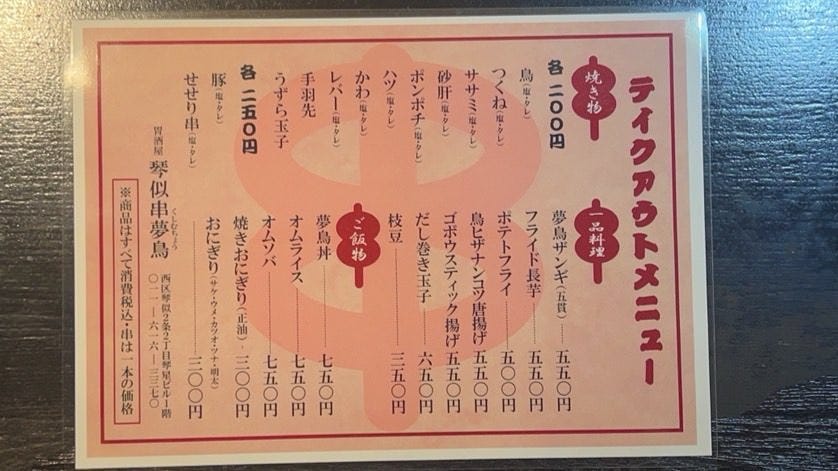 テイクアウトメニュー
焼き物
各 二〇〇円
鳥(塩・タレ)
つくね(塩・タレ)
ササミ(塩・タレ)
砂肝(塩・タレ)
ボンボチ(塩・タレ)
ハツ(塩・タレ)
かわ(塩・タレ)
レバー(塩・タレ)
手羽先
うずら玉子
各 二五〇円
豚(塩・タレ)
せせり串(塩・タレ)
一品料理
夢鳥ザンギ(五貫) 五五〇円
フライド長芋 五五〇円
ポテトフライ 五〇〇円
鳥ヒザナンコツ唐揚げ 五五〇円
ゴボウスティック揚げ 五五〇円
だし巻き玉子 六五〇円
枝豆 三五〇円
ご飯物
夢鳥丼 七五〇円
オムライス 七五〇円
オムソバ 七五〇円
焼きおにぎり(正油) 三〇〇円
おにぎり(サケ・ウメ・カツオ・ツナ・明太)
三〇〇円
居酒屋 琴似串夢鳥
くしむちょう
西区琴似2条2丁目琴星ビル1階
〇一一-六一六-三三七〇
※商品はすべて消費税込・串は一本の価格